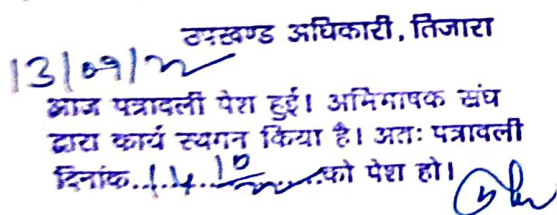 उपखण्ड अधिकारी, तिजारा
13/09/22
आज पत्रावली पेश हुई। अभिभाषक संघ
द्वारा कार्य स्थगन किया है। अतः पत्रावली
दिनांक..14/10/22..को पेश हो।